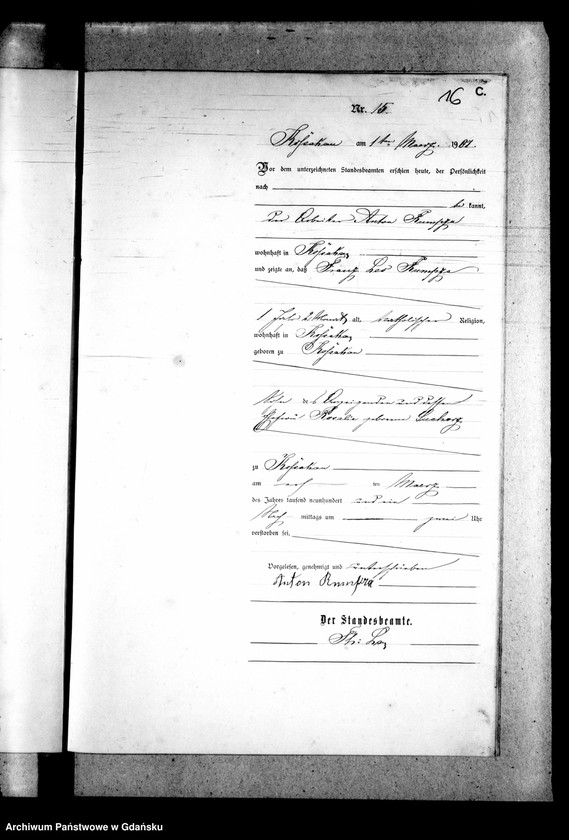 16 C.
Nr. 15.
Kossakau am 1ten Maerz 1901.
Vor dem unterzeichneten Standesbeamten erschien heute, der Persönlichkeit
nach
be kannt,
der Arbeiter Anton
wohnhaft in Kossakau
und zeigte an, daß Franz Leo
1 Jahr 2 Monate alt, katholischer Religion,
wohnhaft in Kossakau
geboren zu Kossakau
Sohn des Anzeigenden und dessen
Ehefrau Rosalie geborene
zu Kossakau
am ten Maerz
des Jahres tausend neunhundert und ein
Nach mittags um zwei Uhr
verstorben sei.
Vorgelesen, genehmigt und unterschrieben
Anton
Der Standesbeamte.
Archiwum Państwowe w Gdańsku